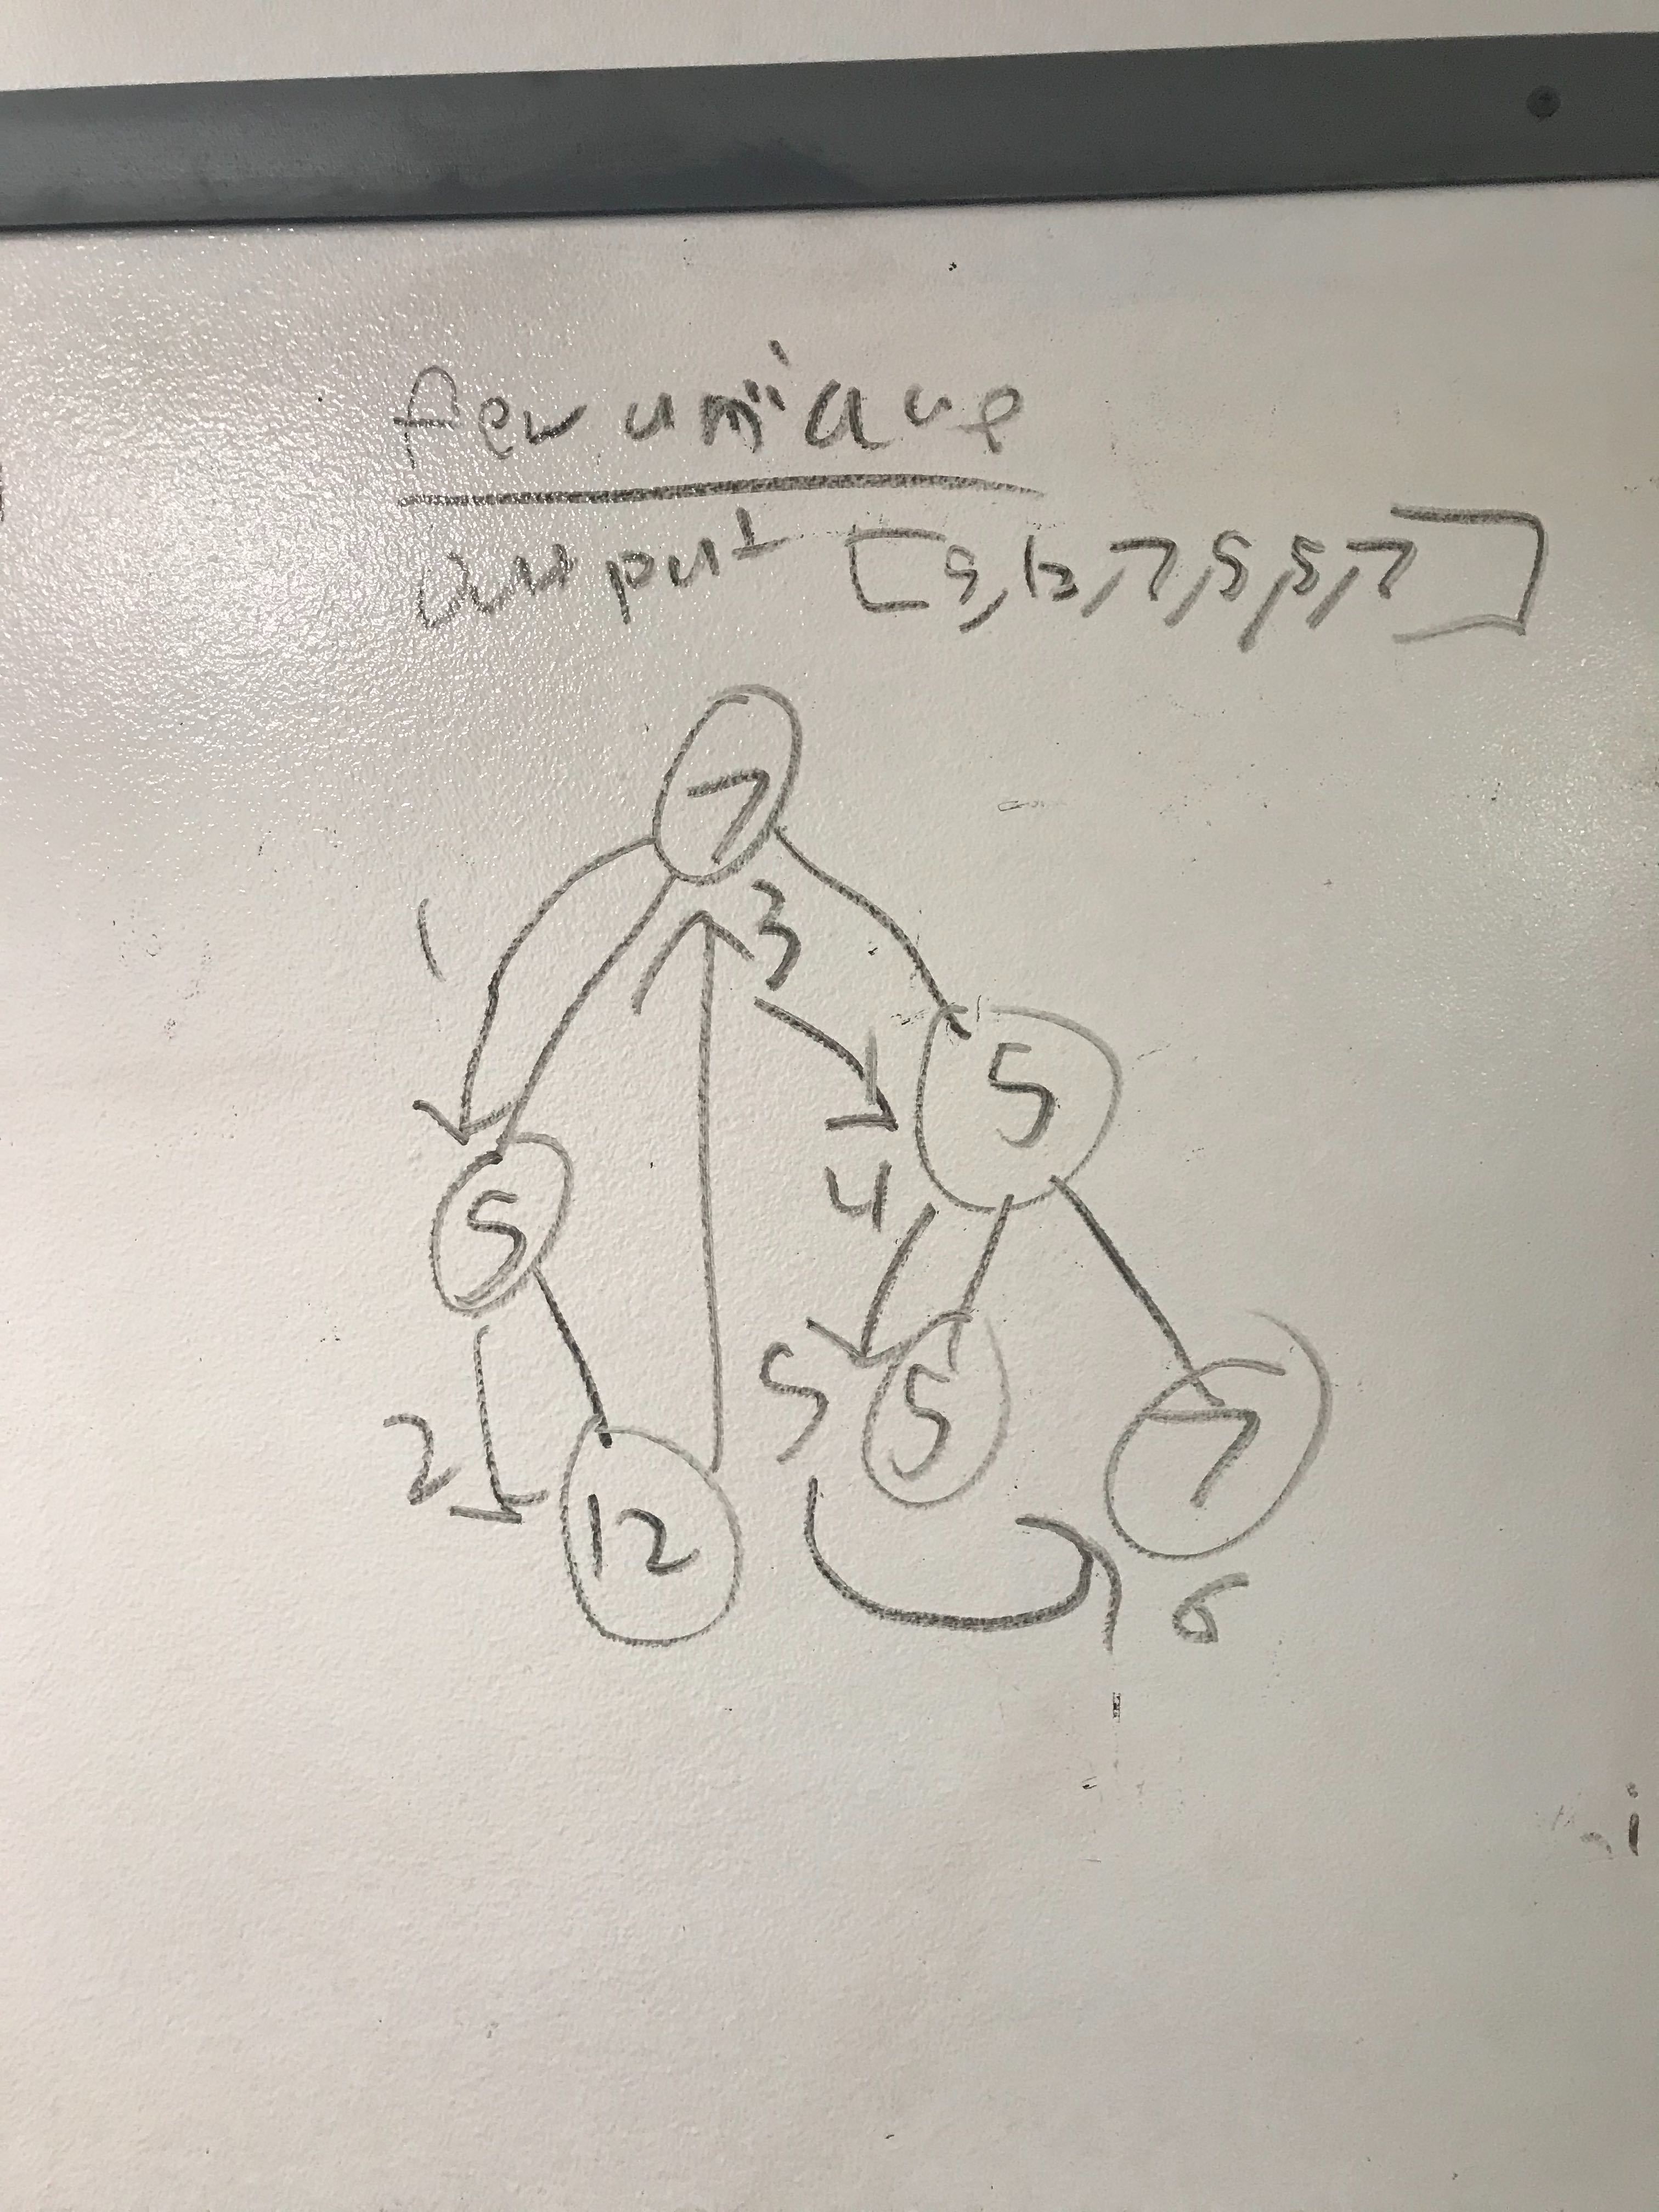 few unique
output [5,12,7,5,5,7]
7
1
3
5
4
5
2
5
5
7
12
6